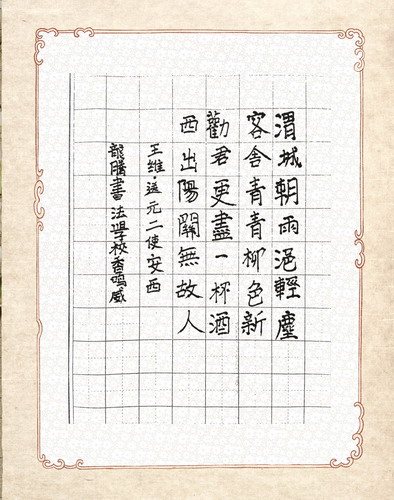 渭城朝雨浥輕塵
客舍青青柳色新
勸君更盡一杯酒
西出陽關無故人
王維·送元二使安西
龍騰書法學校·香鳴威